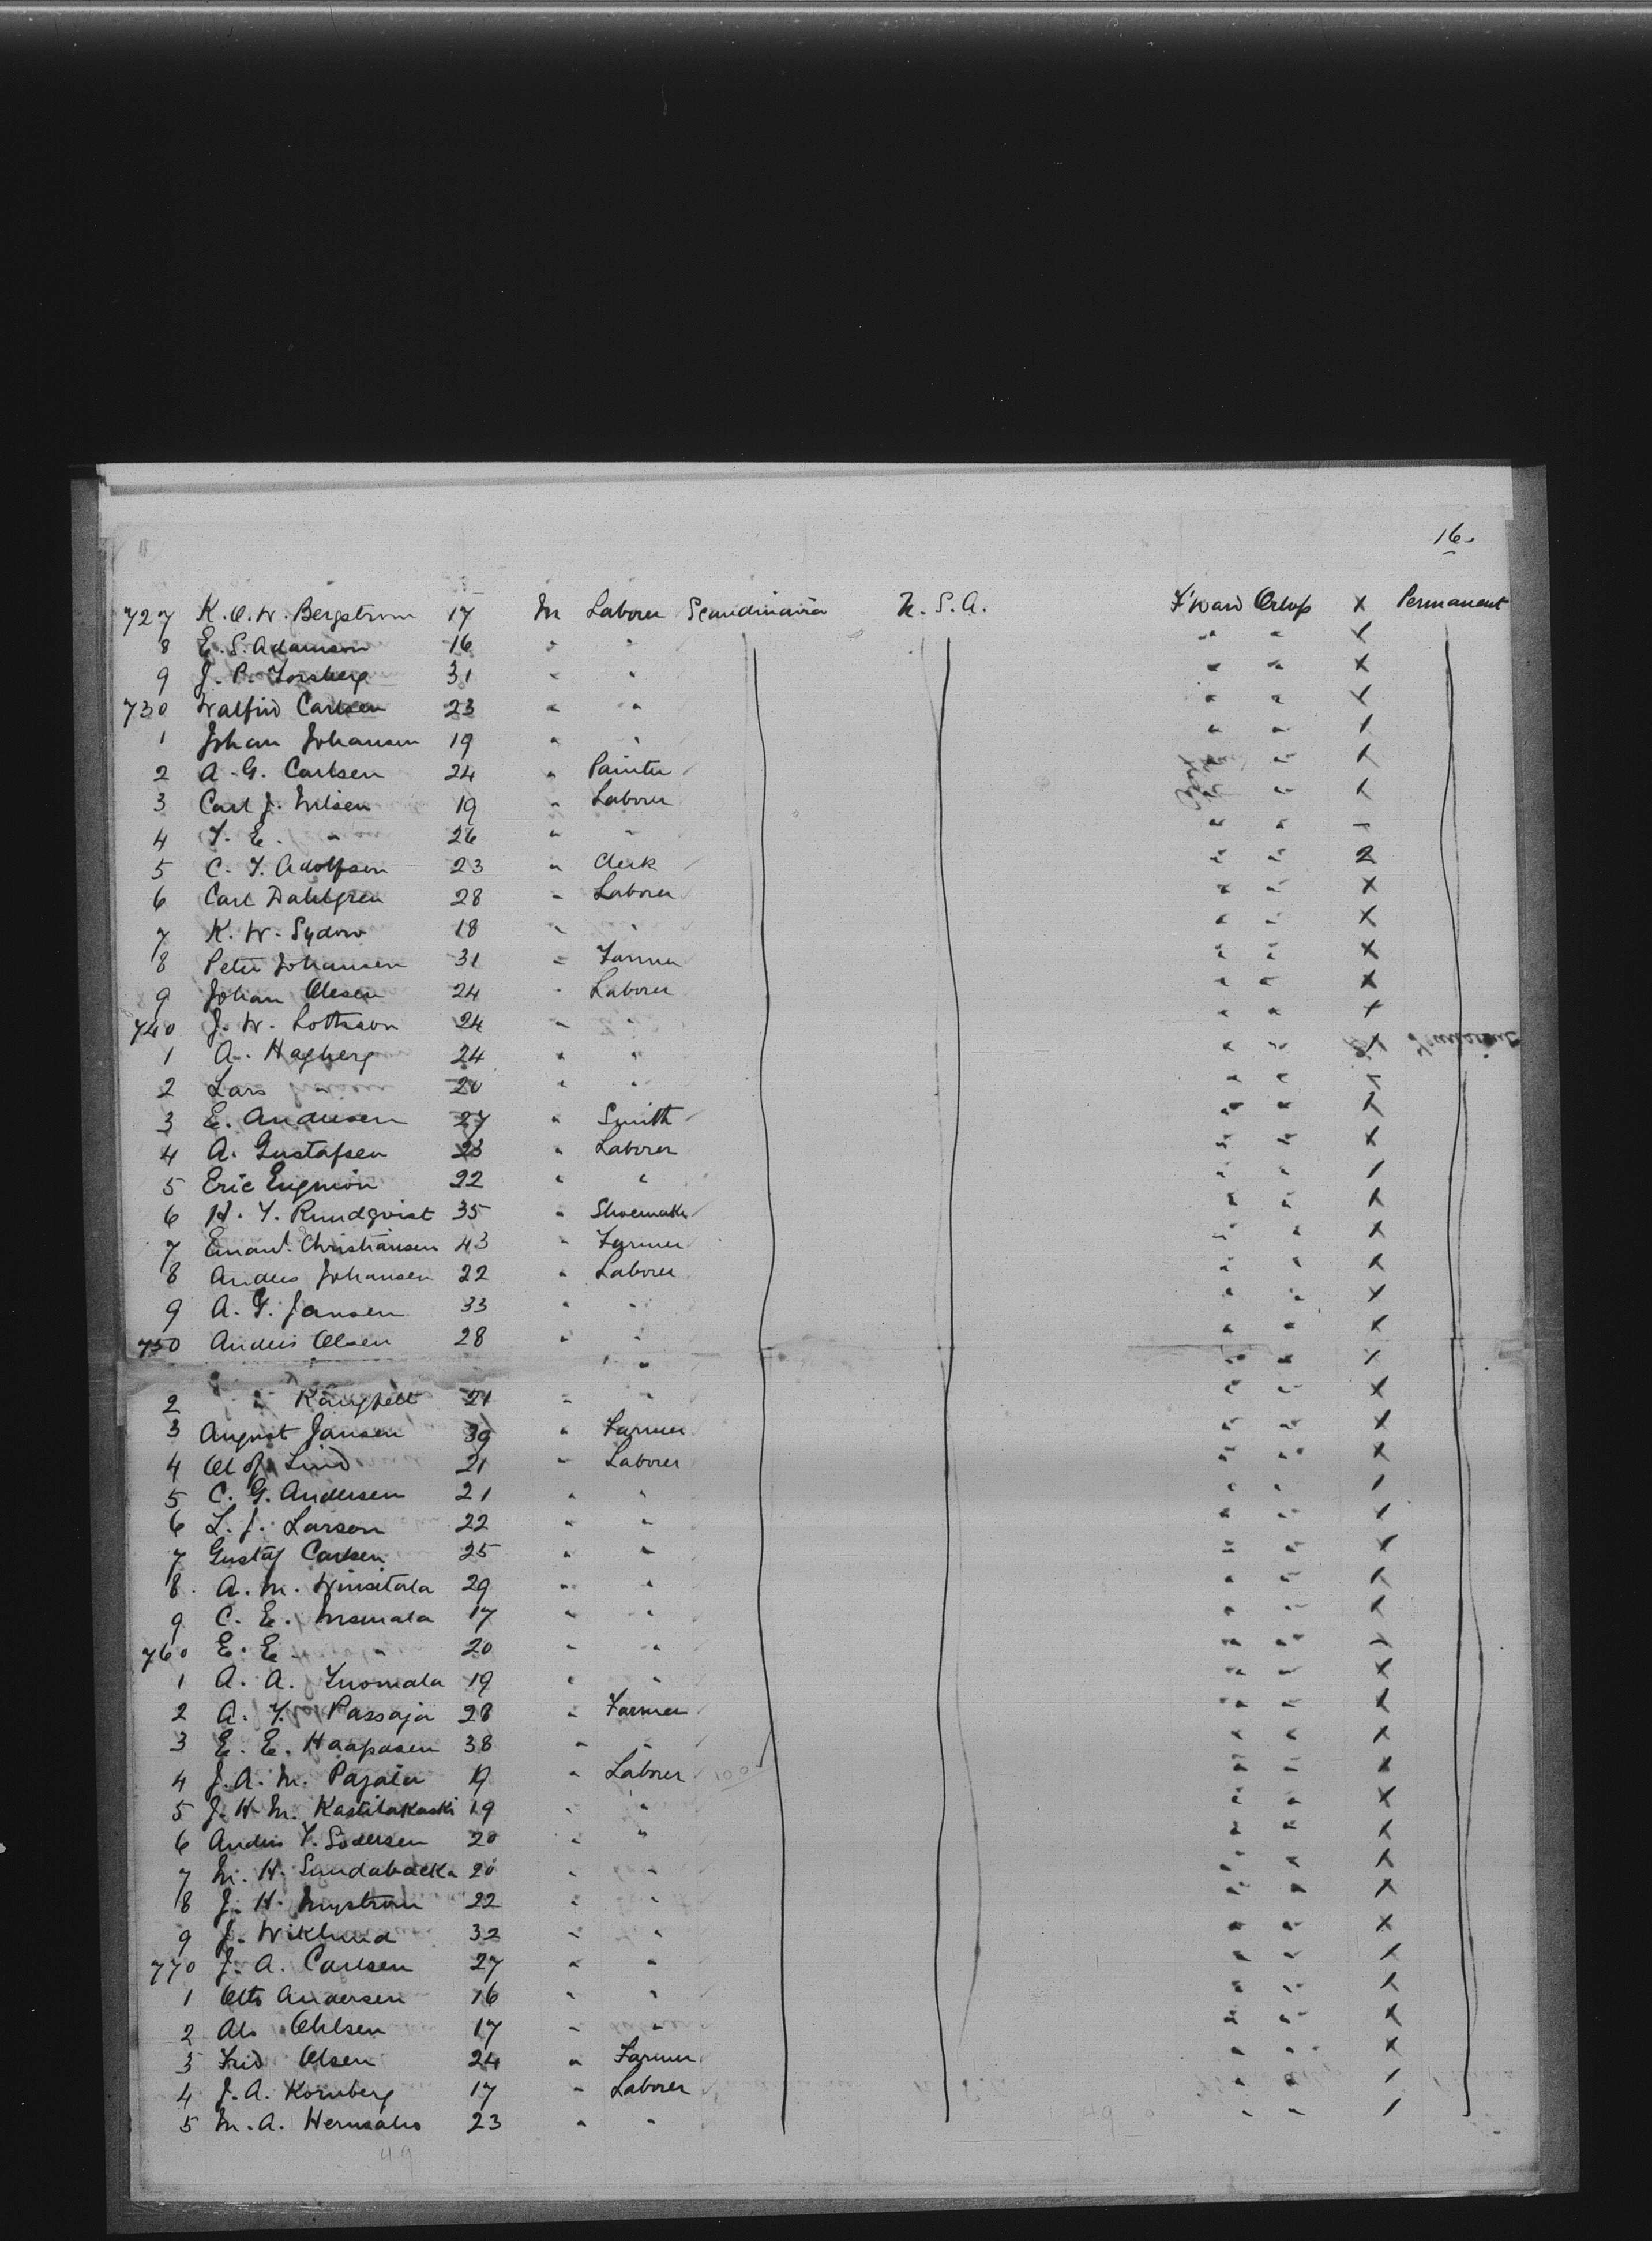 16.
727 K. O. W. Bergstrom 17 M Laborer Scandinavia U. S. A. F'ward Orlop X Permanent
8 E. S. Adamson 16 " " " " X
9 J. P. Forsberg 31 " " " " X
730 Walfrid Carlsen 23 " " " " X
1 Johan Johansen 19 " " " " /
2 A. G. Carlsen 24 " Painter " X
3 Carl J. Nilsen 19 " Laborer " X
4 F. E. " 26 " " " " -
5 C. F. Adolfsen 23 " Clerk " " 2
6 Carl Dahlgren 28 " Laborer " " X
7 K. W. Sydow 18 " " " " X
8 Peter Johansen 31 " Farmer " " X
9 Johan Olesen 24 " Laborer " " X
740 J. W. Lottsson 24 " " " " X
1 A. Hagberg 24 " " " " X
2 Lars " 20 " " " " X
3 E. Andersen 27 " Smith " " X
4 A. Gustafsen 23 " Laborer " " X
5 Eric 22 " " " " /
6 H. F. Rundqvist 35 " Shoemaker " " X
7 Eman'l Christiansen 43 " Farmer " " X
8 Anders Johansen 22 " Laborer " " X
9 A. F. Jansen 33 " " " " X
750 Anders Olsen 28 " " " " X
" " " " X
2 " 21 " " " " X
3 August Jansen 39 " Farmer " " X
4 Olof Lind 21 " Laborer " " X
5 C. G. Andersen 21 " " " " /
6 L. J. Larson 22 " " " " X
7 Gustaf Carlsen 25 " " " " X
8 A. M. 29 " " " " X
9 C. E. 17 " " " " X
760 E. E. " 20 " " " " -
1 A. A. Tuomala 19 " " " " X
2 A. F. Passaja 28 " Farmer " " X
3 E. E. Haapasen 38 " " " " X
4 J. A. M. Pajala 19 " Laborer " " X
5 J. H. M. Kastilakaski 19 " " " " X
6 Anders F. Sodersen 20 " " " " X
7 M. H. Sundabacka 20 " " " " X
8 J. H. Nystrom 22 " " " " X
9 J. Wiklund 32 " " " " X
770 J. A. Carlsen 27 " " " " X
1 Otto Andersen 16 " " " " X
2 Ohlsen 17 " " " " X
3 Frid Olsen 24 " Farmer " " X
4 J. A. Kornberg 17 " Laborer " " /
5 M. A. 23 " " " " /
49
49